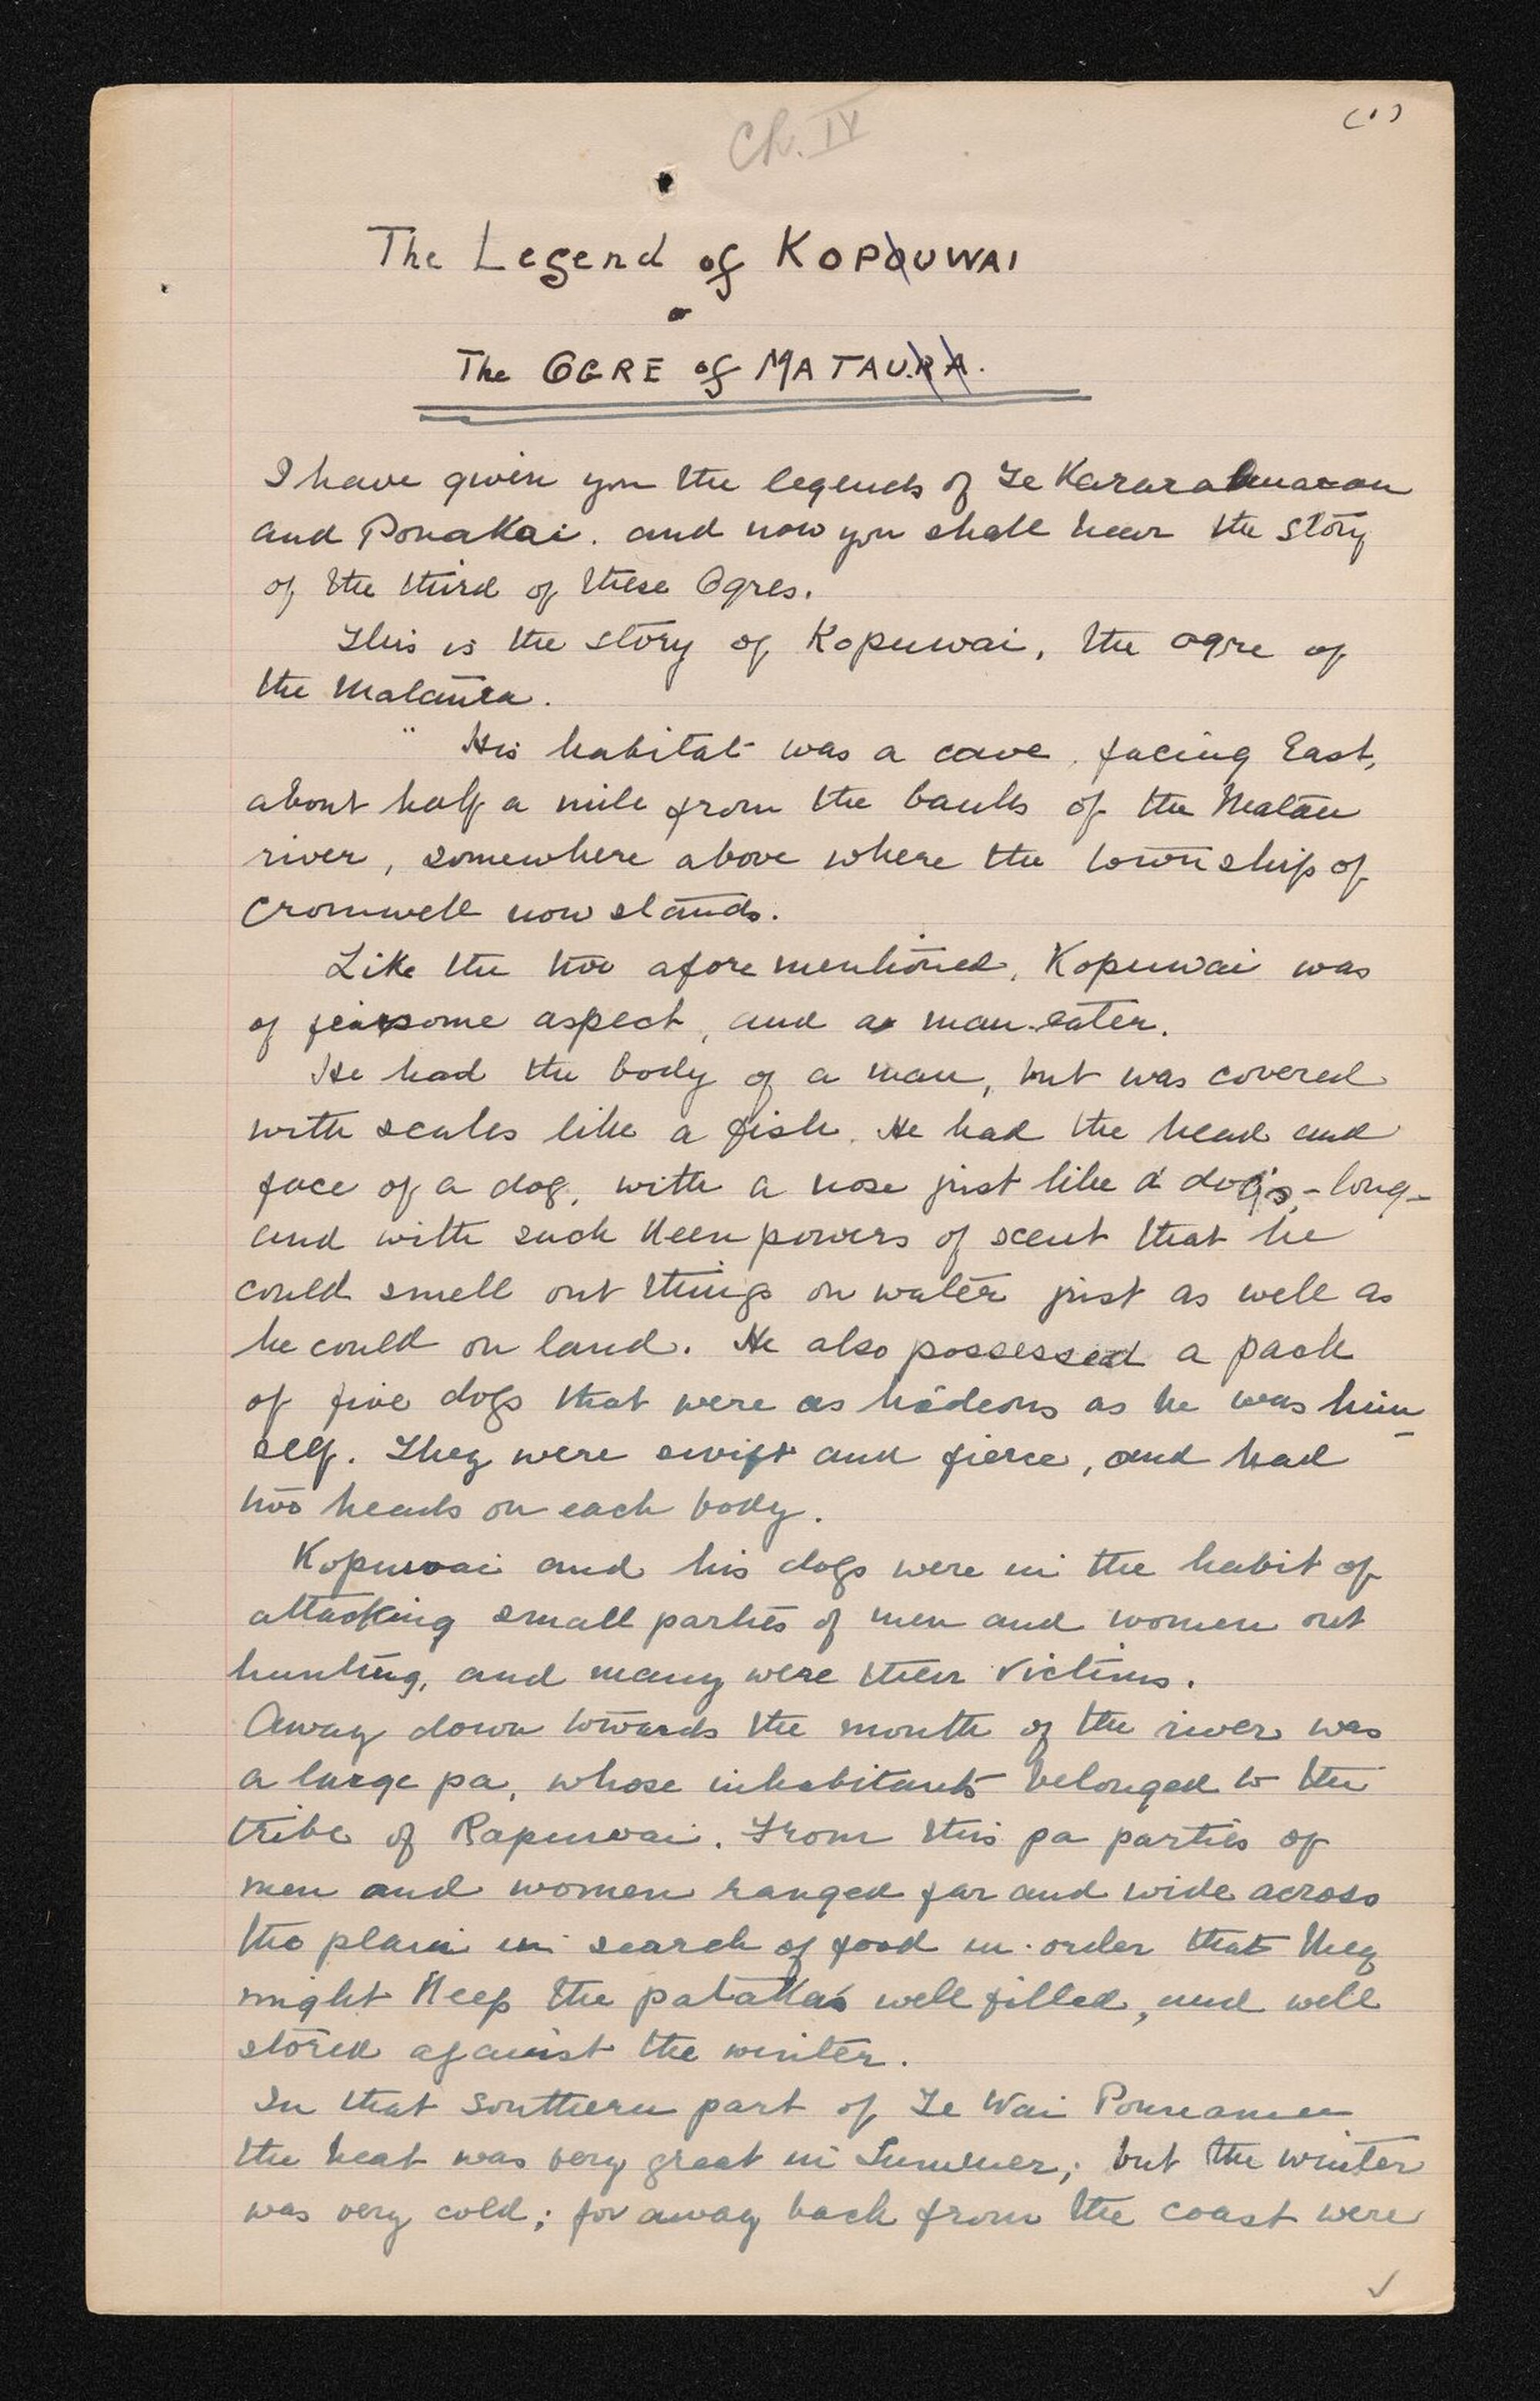 Ch. IV
(1)
The Legend of KOPOUWAI
or
The OGRE of MATAURA.
I have given you the legends of Te Kararahuarau
and Pouakai. and now you shall hear the story
of the third of these Ogres.
This is the story of Kopuwai, the ogre of
the Mataura.
His habitat was a cave, facing East,
about half a mile from the banks of the Matau
river, somewhere above where the township of
Cromwell now stands.
Like the two afore mentioned, Kopuwai was
of fearsome aspect, and a man-eater.
He had the body of a man, but was covered
with scales like a fish. He had the head and
face of a dog, with a nose just like a dog's, - long -
and with such keen powers of scent that he
could smell out things on water just as well as
he could on land. He also possessed a pack
of five dogs that were as hideous as he was him-
self. They were swift and fierce, and had
two heads on each body.
Kopuwai and his dogs were in the habit of
attacking small parties of men and women out
hunting, and many were their victims.
Away down towards the mouth of the river was
a large pa, whose inhabitants belonged to the
tribe of Rapuwai. From this pa parties of
men and women ranged far and wide across
the plain in search of food in order that they
might keep the patakas well filled, and well
stored against the winter.
In that Southern part of Te Wai Pounamu
the heat was very great in Summer; but the winter
was very cold; for away back from the coast were